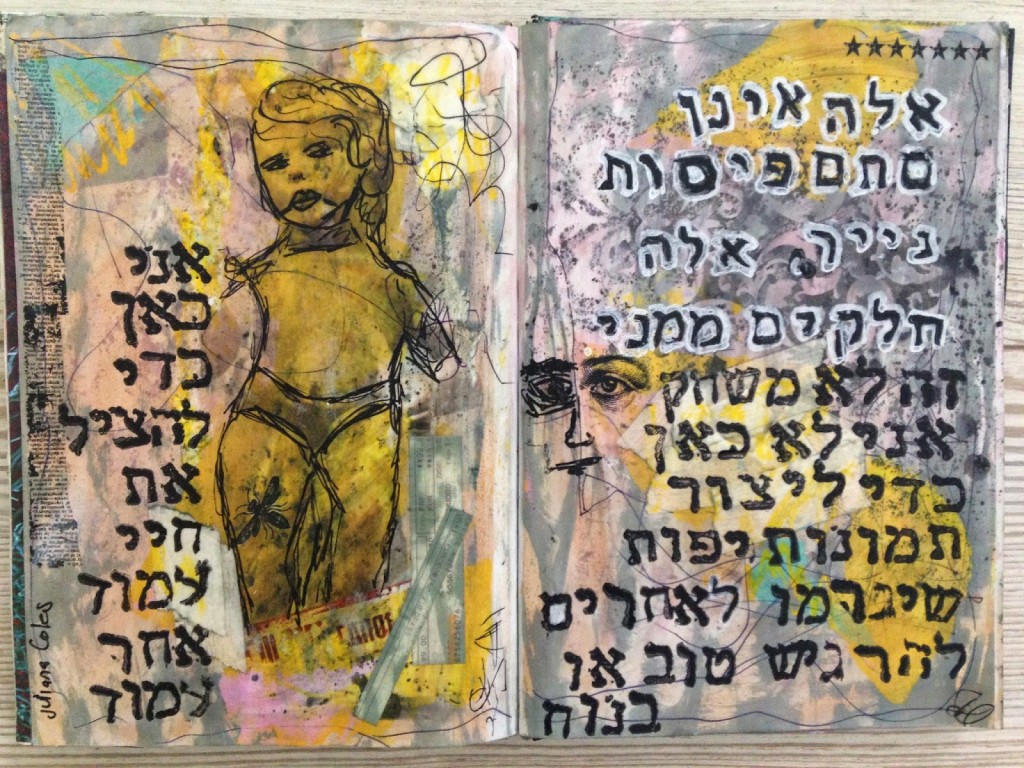 אלה אינן
סתם פיסות
נייר, אלה
חלקים ממני
זה לא משחק
אני לא כאן
כדי ליצור
תמונות יפות
שיגרמו לאחרים
להרגיש טוב או
בנוח
אני
כאן
כדי
להציל
את
חיי
עמוד
אחר
עמוד
Juliana Coles